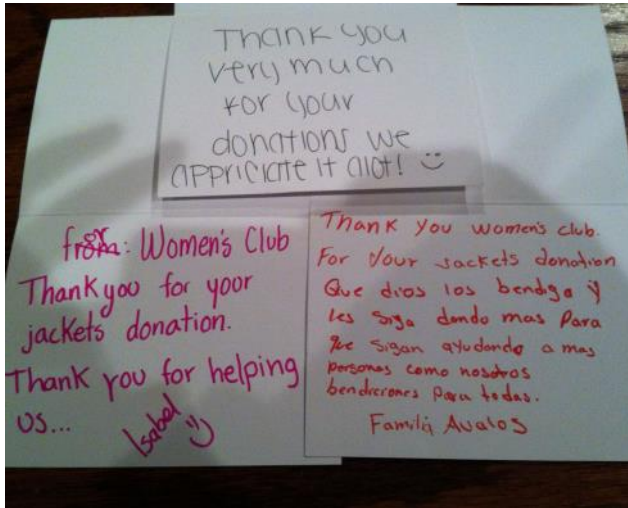 Thank you
very much
for your
donations we
appriciate it alot! :)
for: Women's Club
Thank you for your
jackets donation.
Thank you for helping
us...
Isabel :)
Thank you women's club.
For your jackets donation
Que dios los bendiga y
les siga dando mas Para
que sigan ayudando a mas
personas como nosotros
bendiciones Para todas.
Familia Avalos